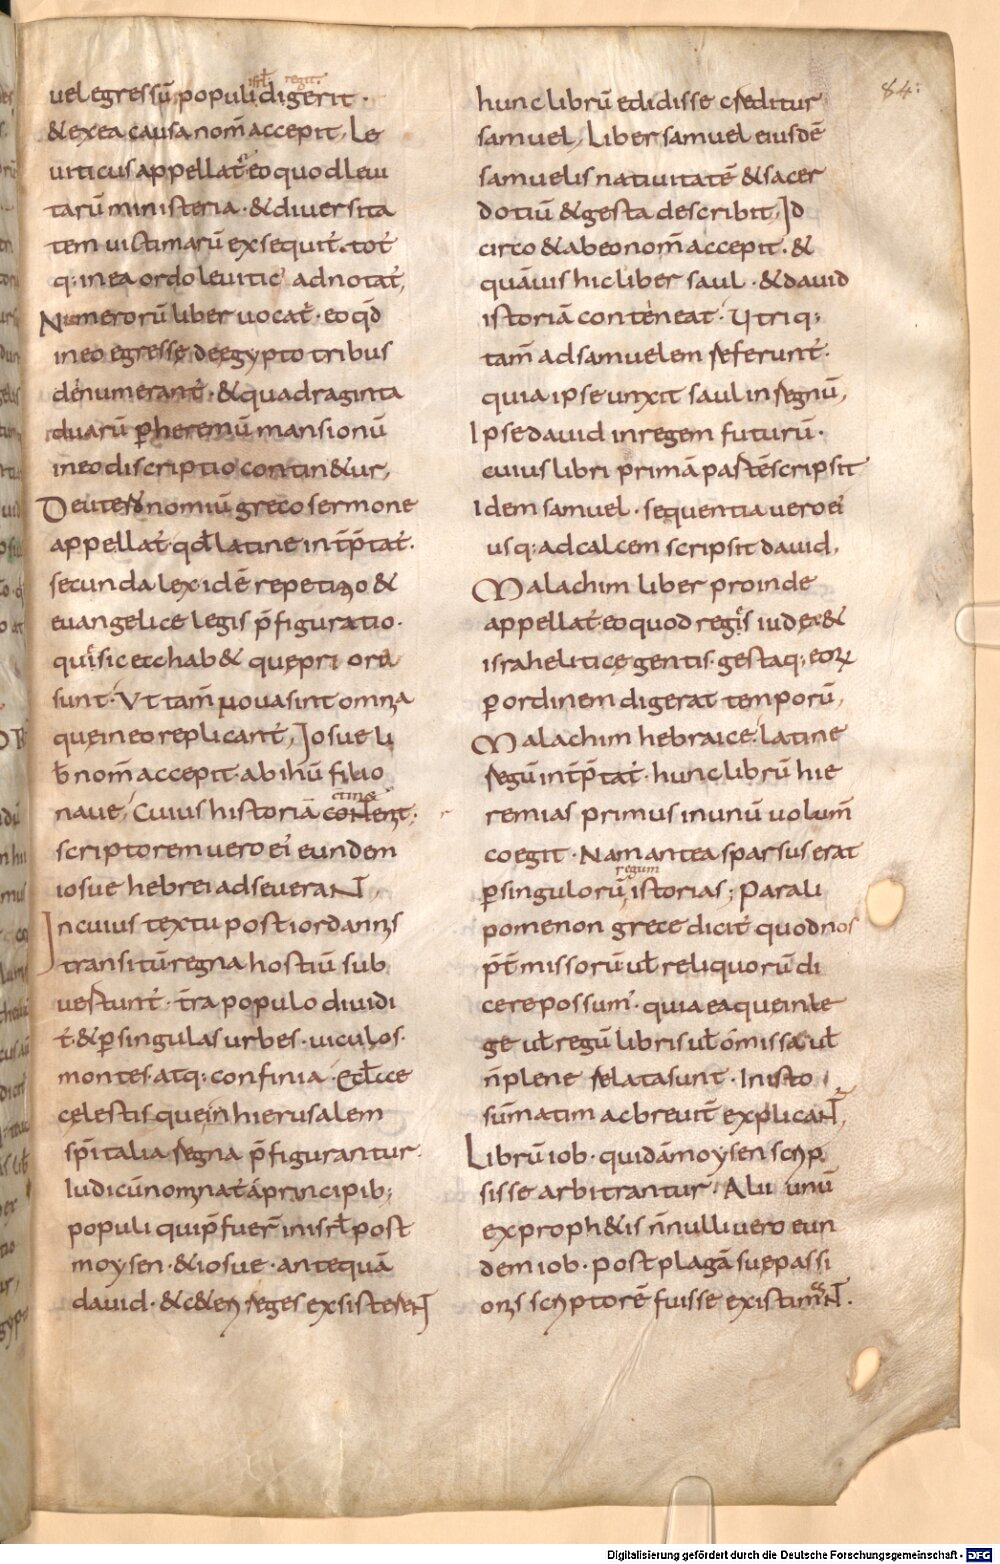 uel egressū populi isrl̄ digerit regit.
& ex ea causa nom̄ accepit, Le
uiticus appellat̄ eo quod leui
tarū ministeria · & diuersita
tem uictimarū exsequit̄. tot
q: in ea ordo leuitic' adnotat̄,
Numerorū liber uocat̄ · eo qd̄
in eo egresse de egypto tribus
denumerant̄ · & quadraginta
duarū p heremū mansionū
in eo discriptio contin&ur,
Deuteronomiū greco sermone
appellat̄ · qd̄ latine int̄p̄tat̄.
secunda lex · idē repetitio &
euangelice legis p̄figuratio ·
qui sic ea hab& que priora
sunt · Ut tam̄ noua sint omnia
que in eo replicant̄, Iosue li
b̄ nom̄ accepit · ab ihū filio
naue, Cuius historiā contin&
scriptorem uero ei' eundem
iosue hebrei adseuerant,
In cuius textu post iordannis
transitū regna hostiū sub
uertunt̄ · t̄ra populo diuidi
t̄ · & p singulas urbes · uiculos ·
montes · atq: confinia · Eccl̄ce
celestis que in hierusalem
sp̄italia regna p̄figurantur ·
Iudicū nominat̄ a principib;
populi qui p̄fuer̄ in isrl̄ post
moysen · & iosue · antequā
dauid · & c&eri reges existerent
84:
hunc librū edidisse creditur
samuel, Liber samuel eiusdē
samuelis natiuitatē & sacer
dotiū & gesta describit, Id
circo & ab eo nom̄ accepit · &
quāuis hic liber saul · & dauid
istoriā conteneat · Utriq:
tam̄ ad samuelem referunt̄ ·
quia ipse unxit saul in regnū,
Ipse dauid in regem futurū ·
cuius libri primā partē scripsit
Idem samuel · sequentia uero ei'
usq: ad calcem scripsit dauid,
Malachim liber proinde
appellat̄ eo quod reges iudee &
israhelitice gentis · gestaq; eorꝝ
p ordinem digerat temporū,
Malachim hebraice · latine
regū int̄p̄tat̄ · hunc librū hie
remias primus in unū uolum̄
coegit · Nam antea sparsus erat
p singulorū regum istorias; Parali
pomenon grece dicit̄ quod nos
p̄t̄missorū ul̄ reliquorū di
cere possum' · quia ea que in le
ge ul̄ regū libris ul̄ omissa ul̄
n̄ plene relata sunt · In isto
sūmatim ac breuit̄ explicant,
Librū iob · quidā moysen scrip
sisse arbitrantur · Alii unū
ex proph&is n̄nulli uero eun
dem iob · post plagā sue passi
onis scriptorē fuisse existimant.
Digitalisierung gefördert durch die Deutsche Forschungsgemeinschaft - DFG